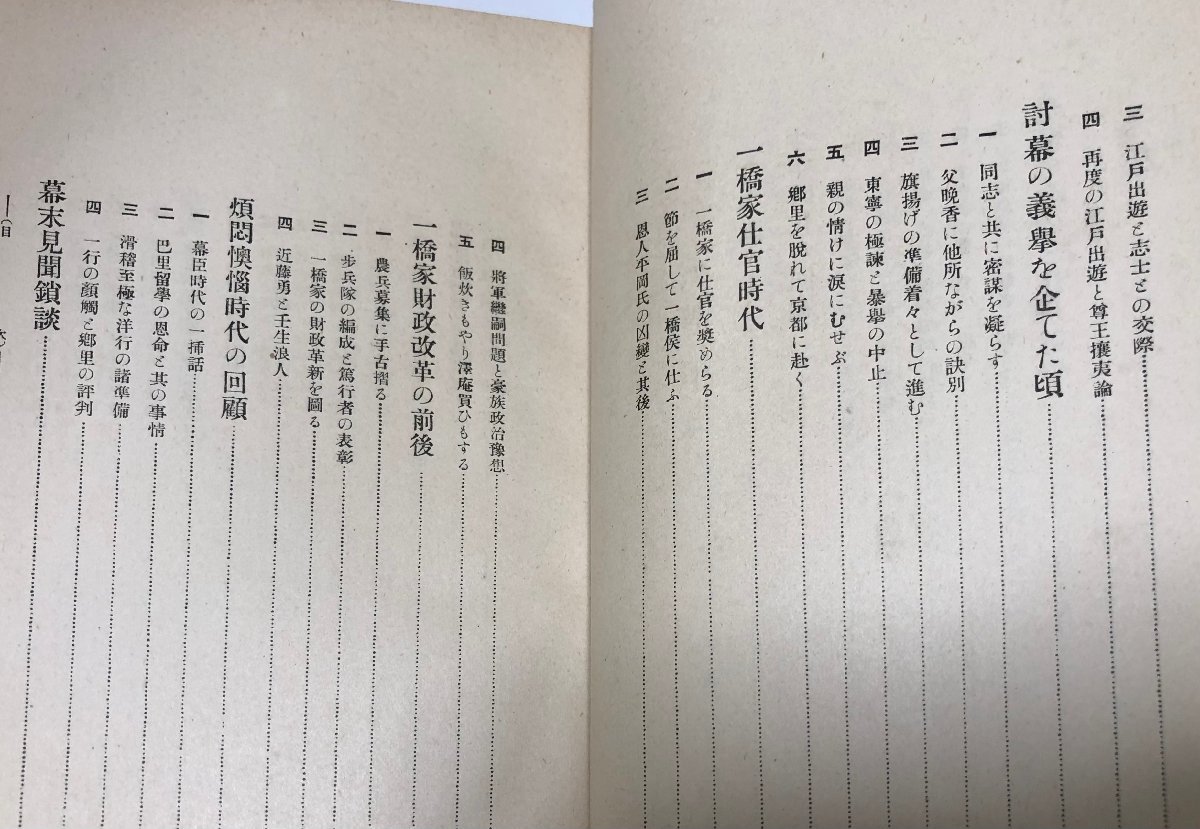 三 江戸出遊と志士との交際
四 再度の江戸出遊と尊王攘夷論
討幕の義擧を企てた頃
一 同志と共に密謀を凝らす
二 父晩香に他所ながらの訣別
三 旗揚げの準備着々として進む
四 東寧の極諫と暴擧の中止
五 親の情けに涙にむせぶ
六 鄕里を脱れて京都に赴く
一橋家仕官時代
一 一橋家に仕官を奬めらる
二 節を屈して一橋侯に仕ふ
三 恩人平岡氏の凶變と其後
四 將軍繼嗣問題と豪族政治豫想
五 飯炊きもやり澤庵買ひもする
一橋家財政改革の前後
一 農兵募集に手古摺る
二 步兵隊の編成と篤行者の表彰
三 一橋家の財政改革新を圖る
四 近藤勇と壬生浪人
煩悶懊惱時代の回顧
一 幕臣時代の一揷話
二 巴里留學の恩命と其の事情
三 滑稽至極な洋行の諸準備
四 一行の顏觸と鄕里の評判
幕末見聞鎖談